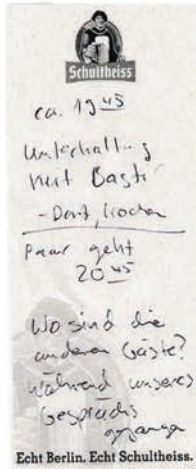 Schultheiss
ca. 19 45
Unterhaltung
mit Basti
- Dort, kochen
Paar geht
20 45
Wo sind die
anderen Gäste?
während unseres
Gesprächs
gegangen
Echt Berlin. Echt Schultheiss.